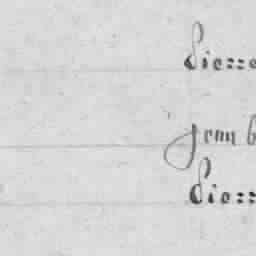 Pierre
Jean b
Pierr